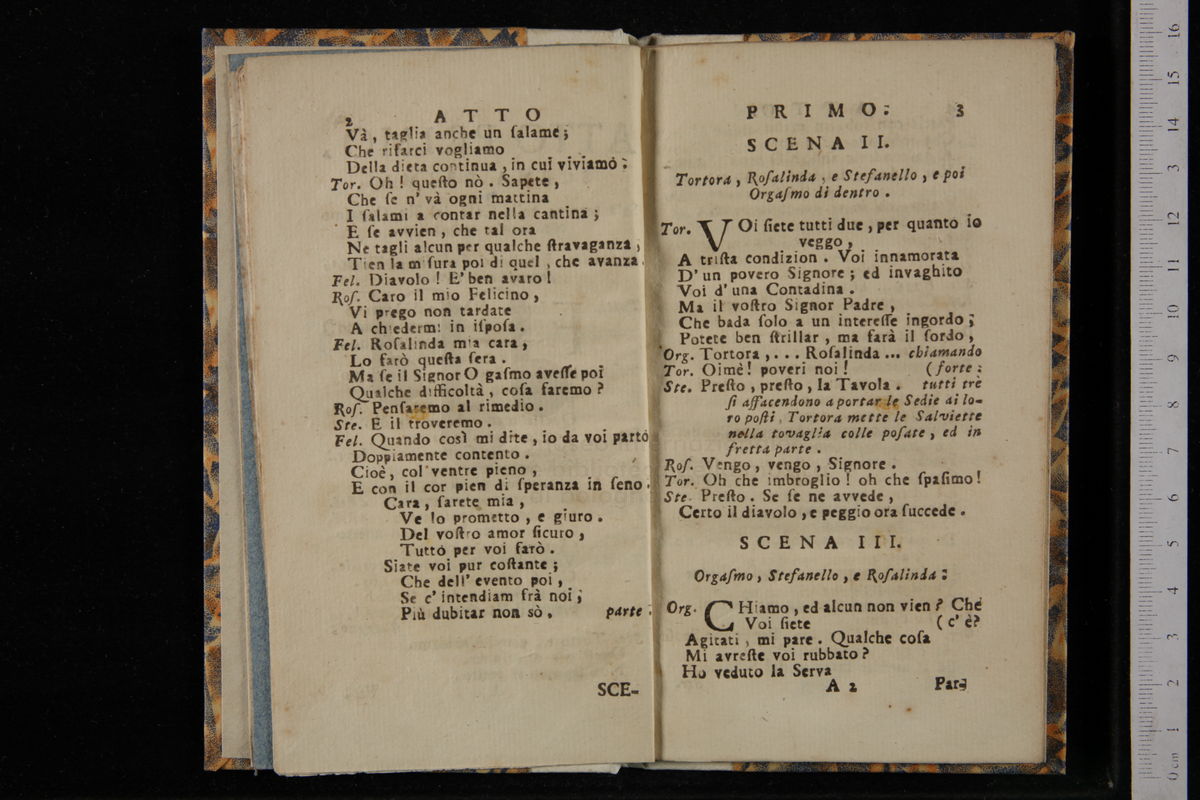 2 ATTO
Và, taglia anche un ſalame;
Che rifarci vogliamo
Della dieta continua, in cui viviamo:
Tor. Oh! queſto nò. Sapete,
Che ſe n'và ogni mattina
I ſalami a contar nella cantina;
E ſe avvien, che tal ora
Ne tagli alcun per qualche ſtravaganza,
Tien la miſura poi di quel, che avanza.
Fel. Diavolo! E' ben avaro!
Roſ. Caro il mio Felicino,
Vi prego non tardate
A chiedermi in iſpoſa.
Fel. Roſalinda mia cara,
Lo farò queſta ſera.
Ma ſe il Signor Orgaſmo aveſſe poi
Qualche difficoltà, coſa faremo?
Roſ. Penſaremo al rimedio.
Ste. E il troveremo.
Fel. Quando così mi dite, io da voi partó
Doppiamente contento.
Cioè, col ventre pieno,
E con il cor pien di ſperanza in ſeno.
Cara, ſarete mia,
Ve lo prometto, e giuro.
Del voſtro amor ſicuro,
Tutto per voi farò.
Siate voi pur coſtante;
Che dell' evento poi,
Se c' intendiam frà noi;
Più dubitar non sò. parte.
SCE-
PRIMO. 3
SCENA II.
Tortora, Roſalinda, e Stefanello, e poi
Orgaſmo di dentro.
Tor. VOi ſiete tutti due, per quanto io
veggo,
A triſta condizion. Voi innamorata
D' un povero Signore; ed invaghito
Voi d' una Contadina.
Ma il voſtro Signor Padre,
Che bada ſolo a un intereſſe ingordo;
Potete ben ſtrillar, ma farà il ſordo,
Org. Tortora, ... Roſalinda ... chiamando
Tor. Oimè! poveri noi! (forte:
Ste. Preſto, preſto, la Tavola. tutti trè
ſi affacendono a portar le Sedie ai lo-
ro poſti, Tortora mette le Salviette
nella tovaglia colle poſate, ed in
fretta parte.
Roſ. Vengo, vengo, Signore.
Tor. Oh che imbroglio! oh che ſpaſimo!
Ste. Preſto. Se ſe ne avvede,
Certo il diavolo, e peggio ora ſuccede.
SCENA III.
Orgaſmo, Stefanello, e Roſalinda:
Org. CHiamo, ed alcun non vien? Ché
Voi ſiete (c' è?
Agitati, mi pare. Qualche coſa
Mi avreſte voi rubbato?
Ho veduto la Serva
A 2 Par-
0 cm 1 2 3 4 5 6 7 8 9 10 11 12 3 14 15 16